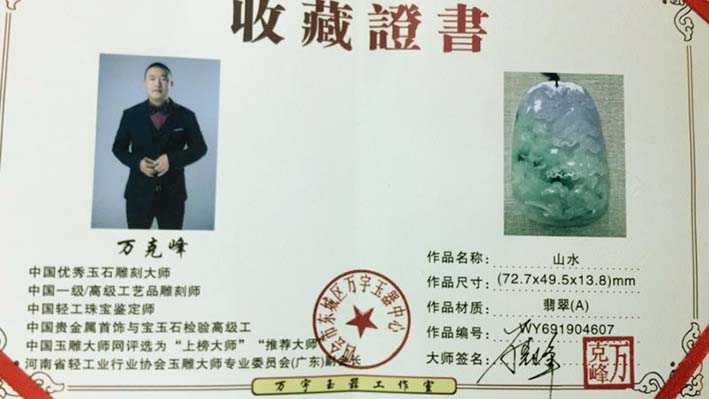 收藏證書
万克峰
中国优秀玉石雕刻大师
中国一级/高级工艺品雕刻师
中国轻工珠宝鉴定师
中国贵金属首饰与宝玉石检验高级工
中国玉雕大师网评选为“上榜大师”“推荐大师”
河南省轻工业行业协会玉雕大师专业委员会(广东)副会长
作品名称: 山水
作品尺寸: (72.7x49.5x13.8)mm
作品材质: 翡翠(A)
作品编号: WY691904607
大师签名: 万克峰
万克峰
市东城区万宇玉器中心
万宇玉器工作室